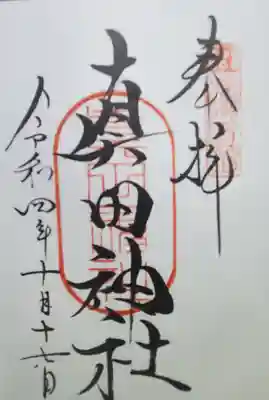 奉拝
真田神社
令和四年十月十六日